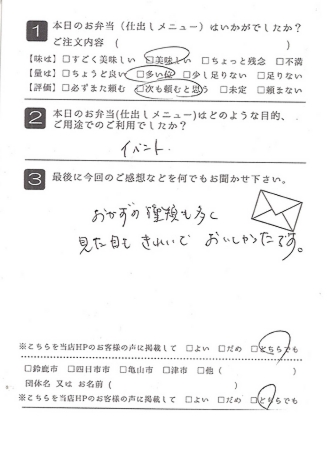 1 本日のお弁当（仕出しメニュー）はいかがでしたか？
ご注文内容（　　　　）
【味は】□すごく美味しい □美味しい □ちょっと残念 □不満
【量は】□ちょうど良い □多い位 □少し足りない □足りない
【評価】□必ずまた頼む □次も頼むと思う □未定 □頼まない
2 本日のお弁当(仕出しメニュー)はどのような目的、
ご用途でのご利用でしたか？
イベント.
3 最後に今回のご感想などを何でもお聞かせ下さい。
おかずの種類も多く
見た目も きれいで おいしかったです。
※こちらを当店HPのお客様の声に掲載して □よい □だめ □どちらでも
□鈴鹿市 □四日市市 □亀山市 □津市 □他（　　　　）
団体名 又は お名前（　　　　）
※こちらを当店HPのお客様の声に掲載して □よい □だめ □どちらでも